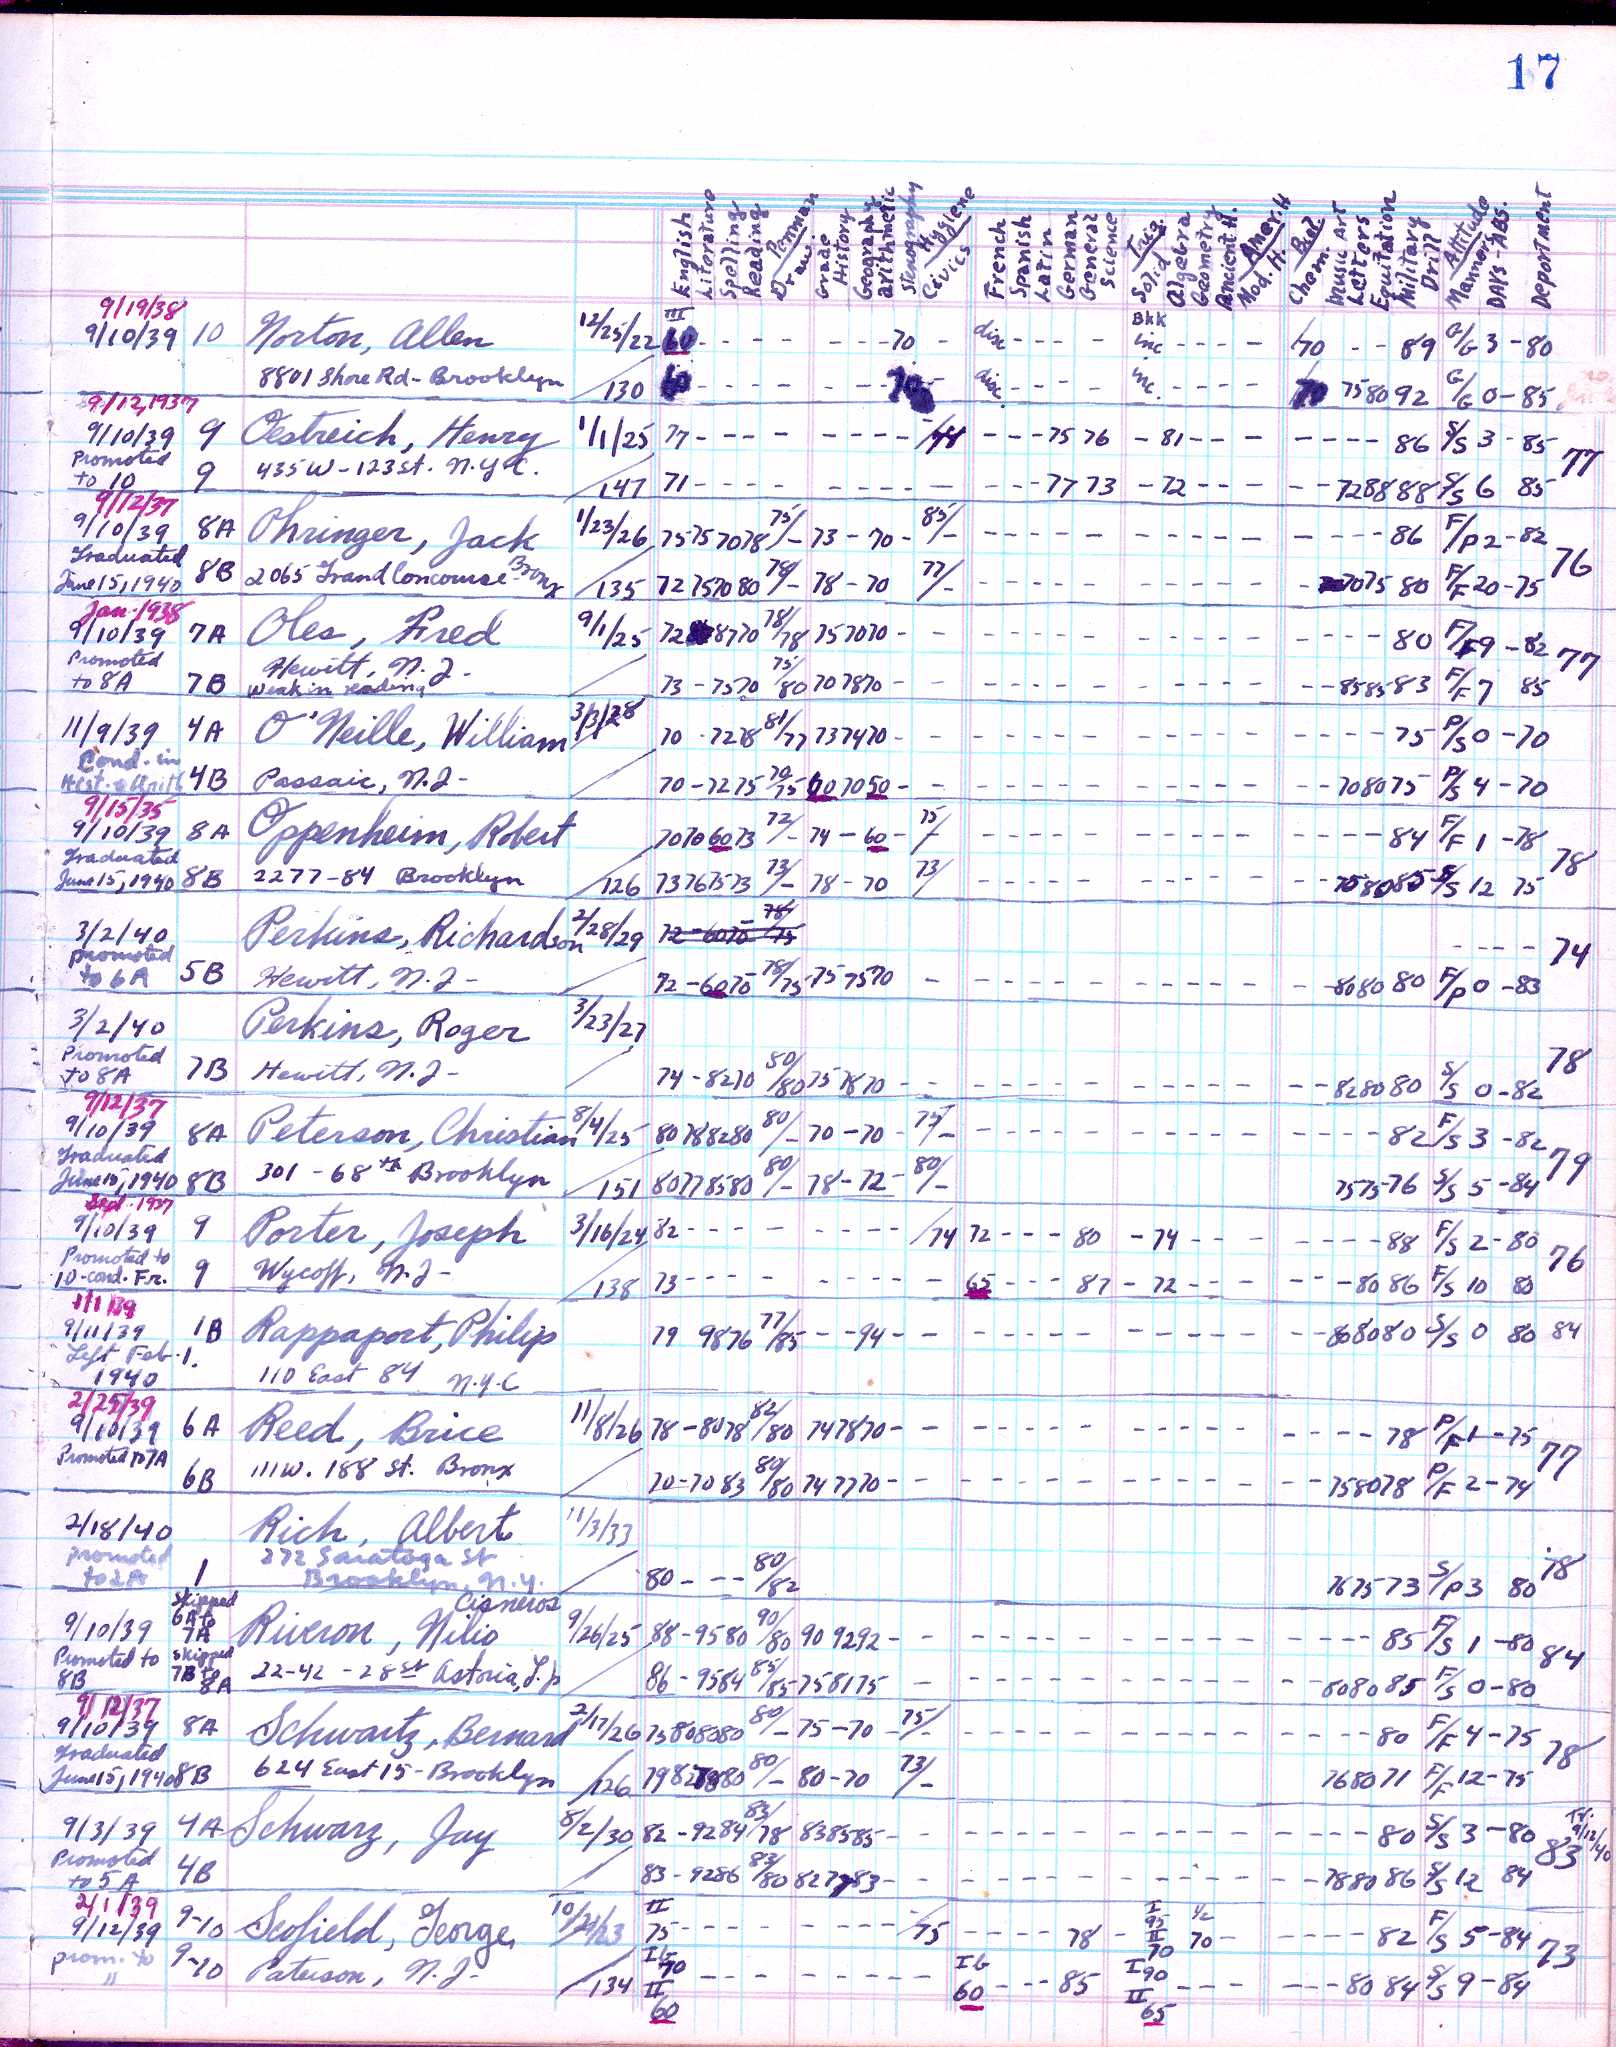 17
English Literature Spelling Reading Penman Draw. Grade History Geography arithmetic Stenography Hygiene Civics French Spanish Latin German General Science Trig. Solid Algebra Geometry Ancient H. Amer. H Mod. H. Biol Chem. Music Art Letters Equitation Military Drill Attitude Manners DAYS-ABS. Deportment
9/19/38
III Bkk
9/10/39 10 Norton, Allen 12/25/22 60 - - - - - - - 70 - disc - - - - inc - - - - /70 - - 89 G/G 3 - 80
8801 Shore Rd - Brooklyn /130 60 - - - - - - - 70 - disc. - - - - inc. - - - - 70 75 80 92 G/G 0 - 85
9/12, 1937
9/10/39 9 Oestreich, Henry 1/1/25 77 - - - - - - - - - - - 75 76 - 81 - - - - - - - 86 S/S 3 - 85
Promoted 77
to 10 9 435 W - 123 St. N.Y.C. /147 71 - - - - - - - - - - - 77 73 - 72 - - - - - 72 88 88 S/S 6 85
9/12/37
9/10/39 8A Ohringer, Jack 1/23/26 75 75 70 78 75/- 73 - 70 - 85/- - - - - - - - - - - 86 F/P 2 - 82
Graduated 76
June 15, 1940 8B 2065 Grand Concourse Bronx /135 72 75 70 80 78/- 78 - 70 77/- - - - - - - - - - 70 75 80 F/F 20 - 75
Jan. 1938
9/10/39 7A Oles, Fred 9/1/25 72 87 70 78/78 75 70 70 - - - - - - - - - - 80 F/F 9 - 82
Promoted Hewitt, N.J. - 77
to 8A 7B Weak in reading / 73 - 75 70 75/80 70 78 70 - - - - - - - - - 85 85 83 F/F 7 85
11/9/39 4A O'Neille, William 3/3/28 70 - 72 78 81/77 73 74 70 - - - - - - - - - 75 P/S 0 - 70
Cond. in
4B Passaic, N.J. - / 70 - 72 75 70/75 60 70 50 - - - - - - - - 70 80 75 P/S 4 - 70
9/15/35
9/10/39 8A Oppenheim, Robert 70 70 60 73 72/- 74 - 60 - 75/- - - - - - - - - - 84 F/F 1 - 78
Graduated 78
June 15, 1940 8B 2277 - 84 Brooklyn /126 73 76 75 73 73/- 78 - 70 73/ - - - - - - - - 75 80 85 S/S 12 75
3/2/40 Perkins, Richardson 2/28/29 72 - 60 70 78/75 - - - - 74
promoted
to 6A 5B Hewitt, N.J. - / 72 - 60 70 78/75 75 75 70 - - - - - - - - 80 80 80 F/P 0 - 83
3/2/40 Perkins, Roger 3/23/27
Promoted 78
to 8A 7B Hewitt, N.J. - / 74 - 82 70 80/80 75 78 70 - - - - - - - - 82 80 80 S/S 0 - 82
9/12/37
9/10/39 8A Peterson, Christian 8/4/25 80 78 82 80 80/- 70 - 70 - 75/- - - - - - - - - - 82 F/S 3 - 82
Graduated 79
June 15, 1940 8B 301 - 68th Brooklyn /151 80 77 85 80 80/- 78 - 72 - 80/- 75 75 - 76 S/S 5 - 84
Sept. 1937
9/10/39 9 Porter, Joseph 3/16/24 82 - - - - - - - - /74 72 - - - 80 - 74 - - - - - - 88 F/S 2 - 80
Promoted to 76
10 - cond. Fr. 9 Wycoff, N.J. - 138 73 - - - - - - - - - 65 - - - 87 - 72 - - - - - 80 86 F/S 10 80
1/1/39
9/11/39 1B Rappaport, Philip 79 98 76 77/85 - - 94 - - - - - - - - - 80 80 80 S/S 0 80 84
Left Feb. 1.
1940 110 East 84 N.Y.C
2/25/39
9/10/39 6A Reed, Brice 11/8/26 78 - 80 78 82/80 74 78 70 - - - - - - - - - 78 P/F 1 - 75
Promoted to 7A 77
6B 111 W. 188 St. Bronx / 70 - 70 83 80/80 74 77 70 - - - - - - - - 75 80 78 P/F 2 - 74
2/18/40 Rich, Albert 11/3/33
promoted 272 Saratoga St 78
to 2A 1 Brooklyn, N.Y. / 80 - - - 80/82 76 75 73 S/P 3 80
Skipped Cisneros
6A to
9/10/39 7A Riveron, Nilio 9/26/25 88 - 95 80 90/80 90 92 92 - - - - - - - - - 85 F/S 1 - 80
Promoted to skipped 84
8B 7B to 8A 22-42 - 28 st Astoria, L.I. / 86 - 95 84 85/85 75 81 75 - - - - - - - 80 80 85 F/S 0 - 80
9/12/37
9/10/39 8A Schwartz, Bernard 2/17/26 75 80 80 80 80/- 75 - 70 - 75/- - - - - - - - - 80 F/F 4 - 75
Graduated 78
June 15, 1940 8B 624 East 15 - Brooklyn /126 79 82 78 80 80/- 80 - 70 73/- 76 80 71 F/F 12 - 75
9/3/39 4A Schwarz, Jay 8/2/30 82 - 92 84 83/78 83 85 85 - - - - - - - - 80 S/S 3 - 80
Promoted 83 9/12/40
to 5A 4B / 83 - 92 86 83/80 82 77 83 - - - - - - - 78 80 86 S/S 12 84
2/1/39
II I 95 1/2
9/12/39 9-10 Scofield, George 10/21/23 75 - - - - - - - - /75 - - - - 78 - II 70 70 - - - - - 82 F/S 5 - 84
prom. to 73
" 9-10 Paterson, N.J. - /134 70 II 60 - - - - - - - - - 60 - - - 85 I 90 II 65 - - - - - - 80 84 S/S 9 - 84